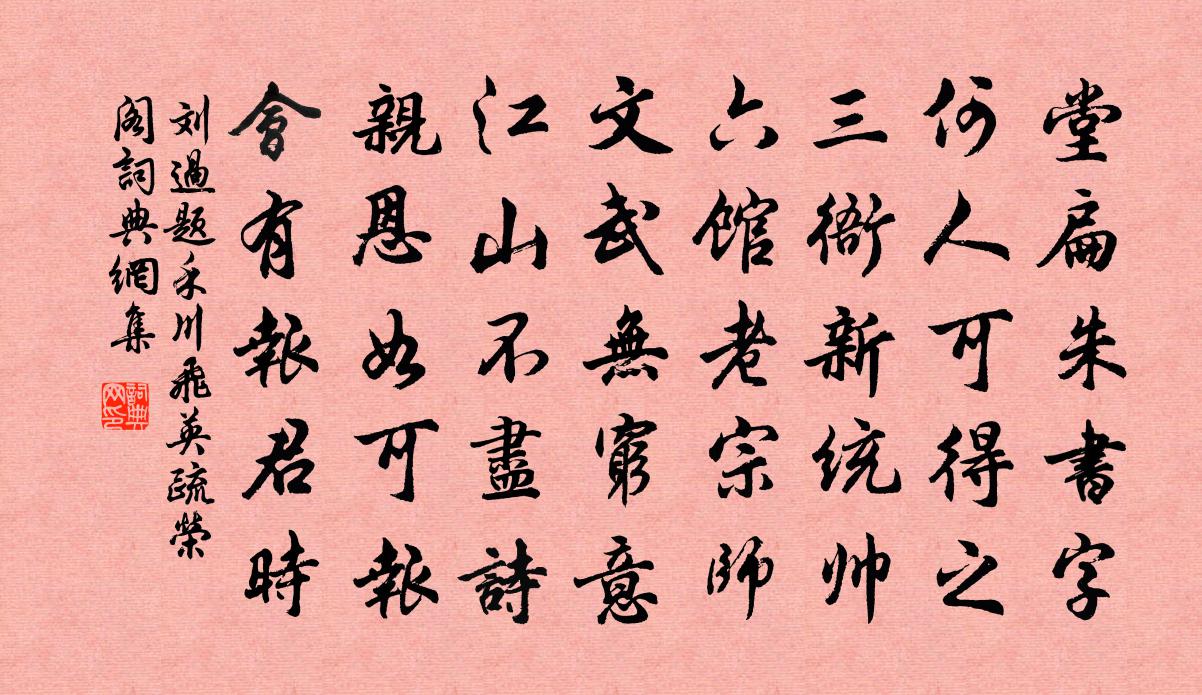 堂扁朱書字
何人可得之
三衙新统帅
六館老宗師
文武無窮意
江山不盡詩
親恩如可報
會有報君時
刘過题禾川飛英疏榮
阁詞典網集
詞典网印